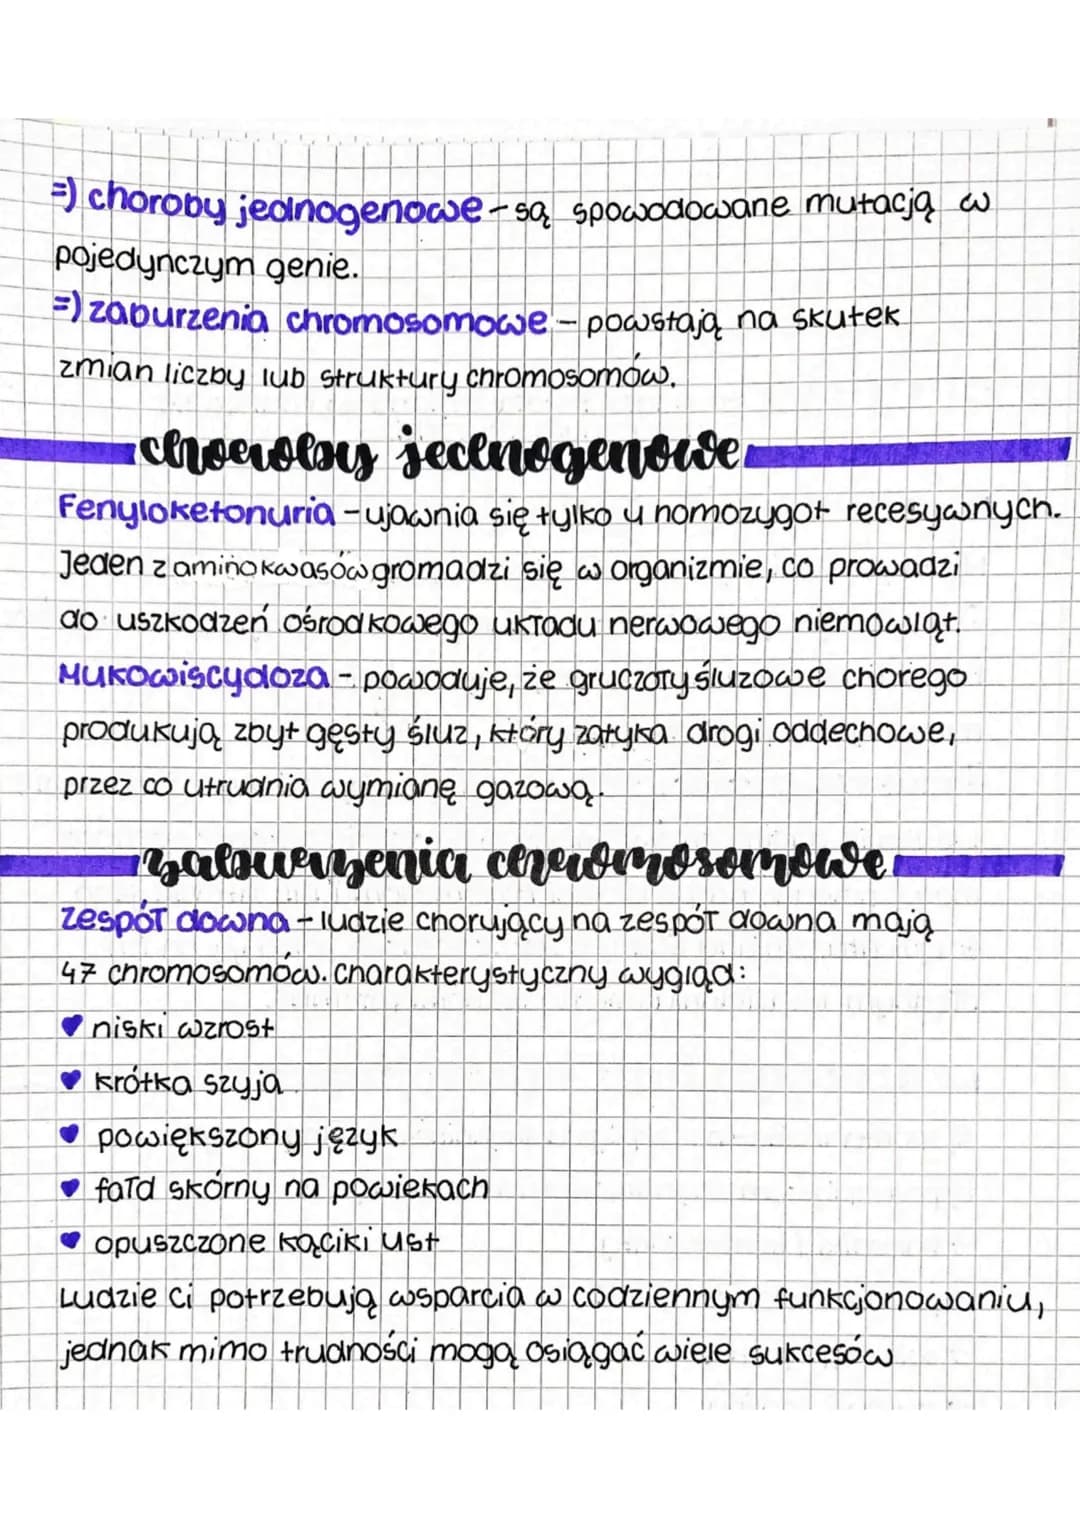 =) choroby jednogenowe - są spowodowane mutacją w
pojedynczym genie.
=) zaburzenia chromosomowe - powstają na skutek
zmian liczby lub struktury chromosomów.
choroby jednogenowe
Fenyloketonuria - ujawnia się tylko u homozygot recesywnych.
Jeden z aminokwasów gromadzi się w organizmie, co prowadzi
do uszkodzeń ośrodkowego układu nerwowego niemowląt.
Mukowiscydoza - powoduje, że gruczoły śluzowe chorego
produkują zbyt gęsty śluz, który zatyka drogi oddechowe,
przez co utrudnia wymianę gazową.
zaburzenia chromosomowe
Zespół downa - ludzie chorujący na zespół downa mają
47 chromosomów. Charakterystyczny wygląd:
♥ niski wzrost
♥ krótka szyja
♥ powiększony język
♥ fałd skórny na powiekach
♥ opuszczone kąciki ust
Ludzie ci potrzebują wsparcia w codziennym funkcjonowaniu,
jednak mimo trudności mogą osiągać wiele sukcesów